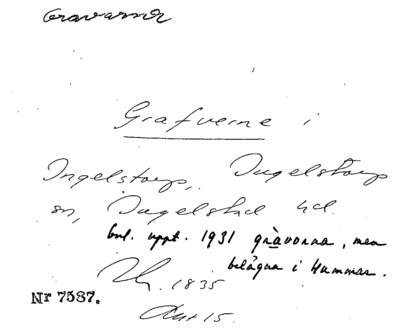 Gravarna
Grafverne i
Ingelstorp, Ingelstorp
sn, Ingelstad hd.
enl. uppt. 1931 gràvorna, men
belägna i Hammar.
1835
Nr 7587.
15.